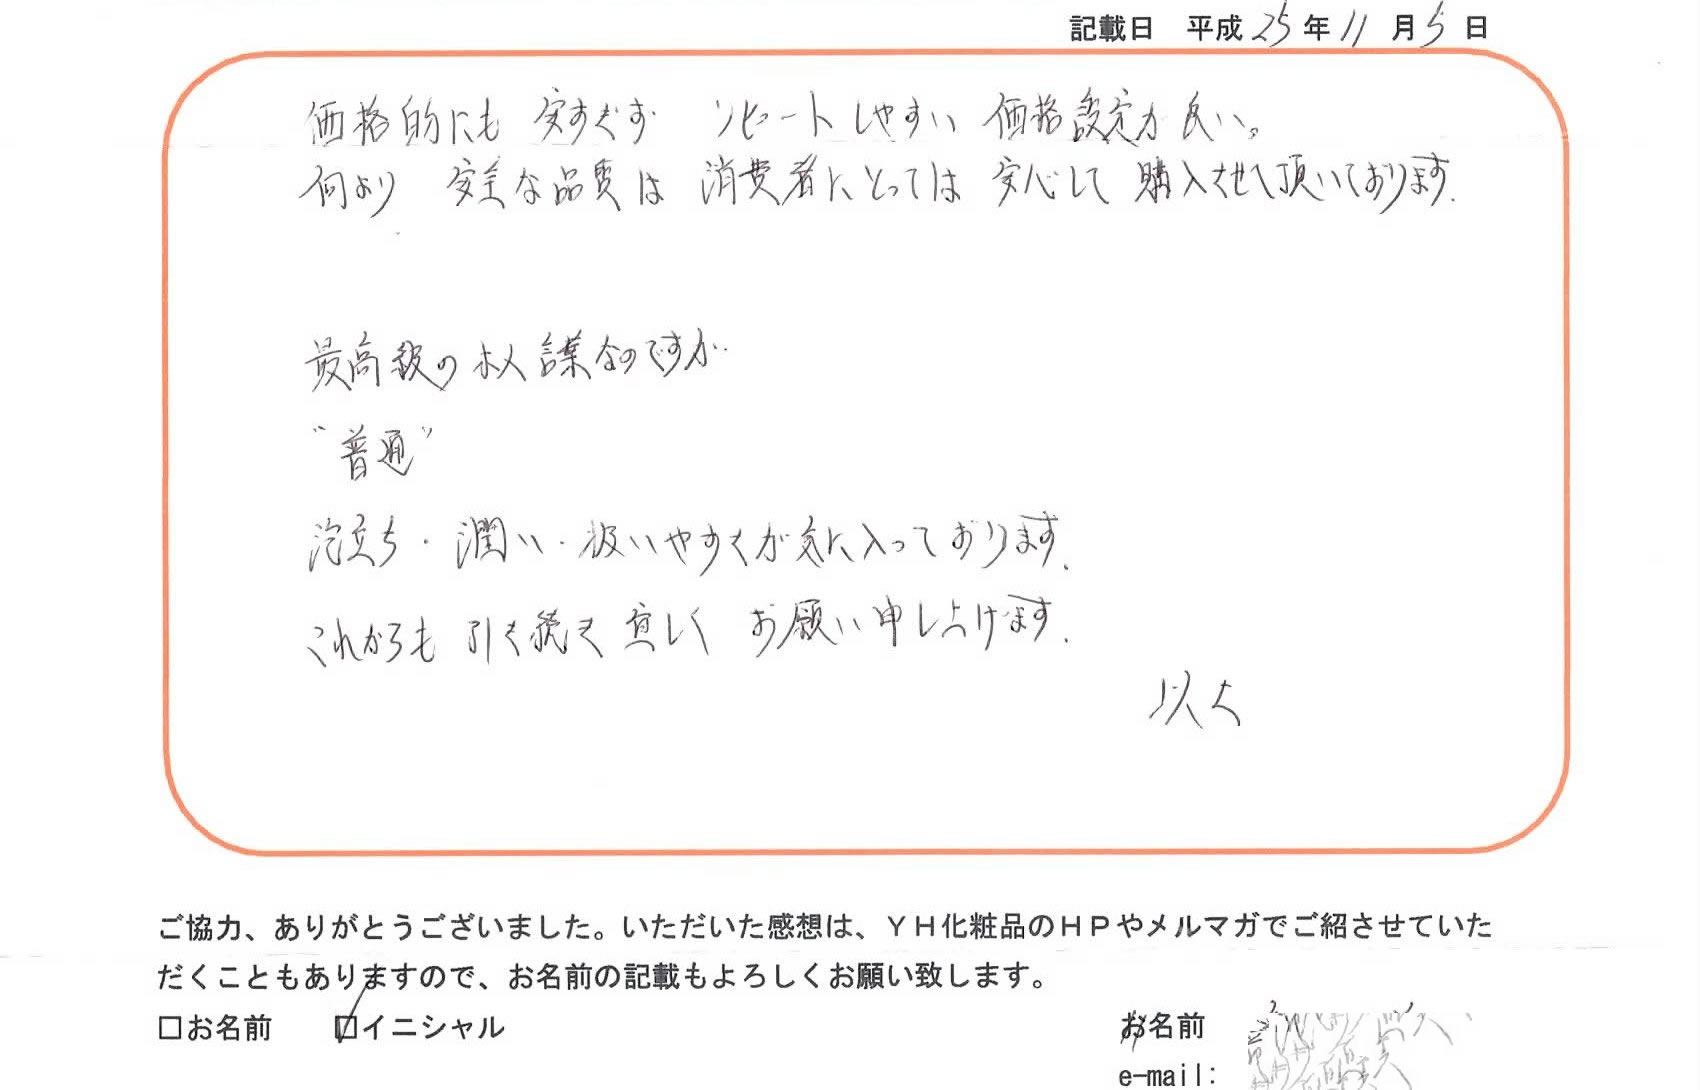 記載日 平成25年11月5日
価格的にも 安すぎず リピートしやすい 価格設定が良い。
何より 安全な品質は 消費者にとっては 安心して 購入させて頂いております.
最高級のホメ言葉なのですが
"普通"
泡立ち・潤い・扱いやすくが気に入っております.
これからも 引き続き 宜しく お願い申し上げます.
以上
ご協力、ありがとうございました。いただいた感想は、ＹＨ化粧品のＨＰやメルマガでご紹させていた
だくこともありますので、お名前の記載もよろしくお願い致します。
□お名前 ☑イニシャル
お名前
e-mail: